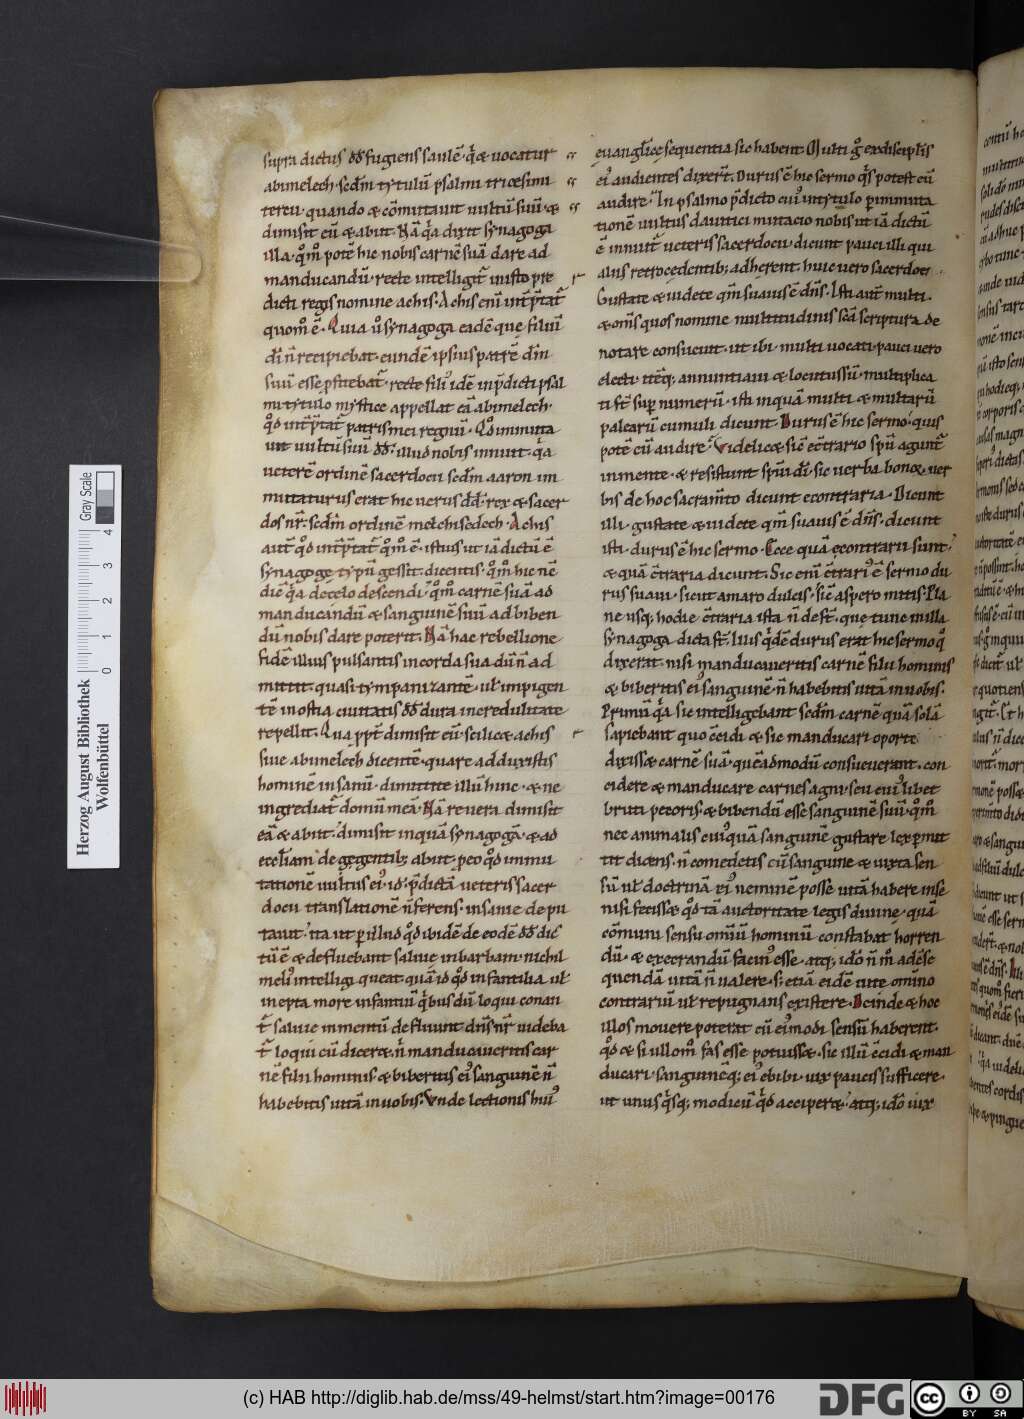 supra dictus dd̄ fugiens saulē · q̄ & uocatur
abimelech · scd̄m tytulū psalmi tricesimi
tercii · quando & cōmutauit uultū suū · &
dimisit eū & abiit · Nā q̄a dixit synagoga
illa · qm̊ potē hic nobis carnē suā dare ad
manducandū · recte intelligit᷑ in isto pre
dicti regis nomine achis · Achis enī int̄p̄tat᷑
quom̊ ē · Quia ů synagoga eādē que filiū
dī n̄ recipiebat · eundē ipsius patrē dīm
suū esse p̄ſtiebat᷑ · recte fili᷒ idē in p̄dicti psal
mi tytulo mystice appellat eā abimelech ·
qd̊ int̄p̄tat᷑ patris mei regnū · Qd̊ inmuta
uit uultū suū dd̄ · illud nobis innuit · q̄a
ueterē ordinē sacerdocii scd̄m aaron im
mutaturus erat hic uerus dd̄ · rex & sacer
dos nr̄ · scd̄m ordinē melchisedech · Achis
aut̄ qd̊ int̄p̄tat᷑ qm̊ ē · istius ut iā dictū ē
synagoge typū gessit · dicentis · qm̊ hic nē
die q̄a de celo descendi · qm̊ carnē suā ad
manducandū & sanguinē suū ad biben
dū nobis dare poterit · Nā hac rebellione
fidē illius pulsantis in corda sua dū n̄ ad
mittit · quasi tympanizantē · ul̄ impigen
tē in ostia ciuitatis dd̄ dura incredulitate
repellit · Qua ppt̄ dimisit eū · scilic& achis
siue abimelech dicentē · quare adduxistis
hominē insanū · dimittite illū hinc · & ne
ingrediat᷑ domū meā · Nā reuera dimisit
eā & abiit · dimisit inquā synagogā · & ad
eccl̄iam de gegentib; abiit · p eo qd̊ immu
tationē uultus ei᷒ · id · p̄dictā ueteris sacer
docii translationē n̄ ferens · insanie depu
tauit · ita ut p illud qd̊ ibidē de eodē dd̄ dic
tū ē & defluebant saliue in barbam · nichil
meli᷒ intelligi queat quā id qd̊ infantilia ul̄
inepta more infantiū q̄bus dū loqui conan
t᷑ saliue in mentū defluunt dn̄s nr̄ uideba
t᷑ loqui cū dicer& · n̄ manducaueritis car
nē filii hominis · & biberitis ei᷒ sanguinē n̄
habebitis uitā in uobis · Vnde lectionis hui᷒
euanglice sequentia sic habent · Multi ḡ ex discipulis
ei᷒ audientes dixer̄t · Durus ē hic sermo q̄s potest eū
audire · In psalmo p̄dicto cui᷒ in tytulo p inmuta
tionē uultus dauitici mutacio nobis ut iā dictū
ē innuit᷑ ueteris sacerdocii · dicunt pauci illi qui
aliis retrocedentib; adherent huic uero sacerdoti ·
Gustate & uidete qm̄ suauis ē dn̄s · Isti aut̄ multi ·
& om̄s quos nomine multitudinis scā scriptura de
notare consueuit · ut ibi · multi uocati · pauci uero
electi · itēq; annuntiaui & locutus sū · multiplica
ti st̄ sup numerū · isti inquā multi & multarū
palearū cumuli dicunt · Durus ē hic sermo · quis
potē eū audire · Videlic& siē ēcrario spū agunt᷑
in mente · & resistunt spūi dī · sic uerba bonoꝝ uer
bis de hoc sacram̄to dicunt econtraria · Dicunt
illi · gustate & uidete qm̄ suauis ē dn̄s · dicunt
isti · durus ē hic sermo · Ecce quā econtrarii sunt ·
& quā ētraria dicunt · Sic enī ētrari᷒ ē sermo du
rus suaui · sicut amaro dulcis · sic aspero mitis · Pla
ne usq; hodie ētraria ista n̄ dest̄ · que tunc in illa
synagoga dicta st̄ · Illis q̄dē durus erat hic sermo q̊
dixerat · nisi manducaueritis carnē filii hominis
& biberitis ei᷒ sanguinē · n̄ habebitis uitā in uobis ·
Primū q̄a sic intelligebant scd̄m carnē quā solā
sapiebant quo ēcidi & sic manducari oporte
dixiss& carnē suā · quēadmodū consueuerant · con
cidere & manducare carnes agni · seu cui᷒libet
bruti pecoris · & bibendū esse sanguinē suū · qm̊
nec animalis cui᷒quā sanguinē gustare lex p̄mit
tit dicens · n̄ comedetis cū sanguine & iuxta sen
sū ul̄ doctrinā ei᷒ neminē posse uitā habere in se
nisi feciss& qd̊ tā auctoritate legis diuine · quā
cōmuni sensu om̄iū hominū constabat horren
dū · & execrandū facin᷒ esse · atq; idō n̄ m̊ adēse
quendā uitā n̄ ualere · s; etiā eidē uite om̄ino
contrariū ul̄ repugnans existere · Deinde & hoc
illos mouere poterat cū ei᷒modi sensū haberent ·
qd̊ & si ullom̊ fas esse potuiss& · sic illū ēcidi & man
ducari · sanguinēq; ei᷒ ebibi · uix paucis sufficere ·
ut unus q̄sq; modicū qd̊ acciper& · atq; idō uix
Herzog August Bibliothek
Wolfenbüttel
Gray Scale
0 1 2 3 4
(c) HAB http://diglib.hab.de/mss/49-helmst/start.htm?image=00176
DFG
cc BY SA